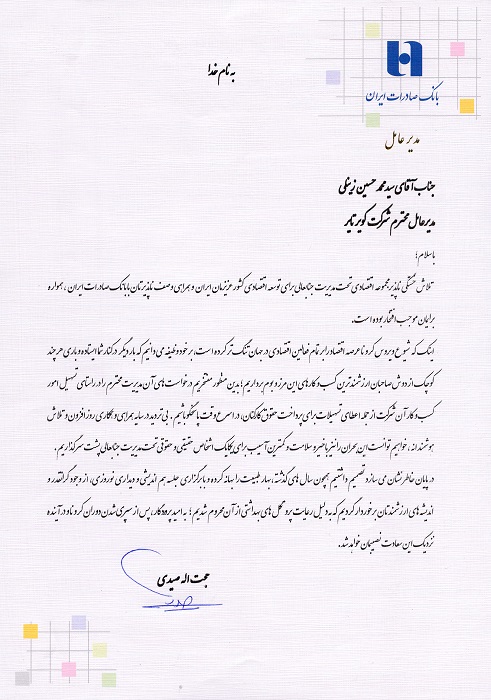 به نام خدا
بانک صادرات ایران
مدیر عامل
جناب آقای سید محمد حسین زینلی
مدیرعامل محترم شرکت کویر تایر
با سلام؛
تلاش خستگی ناپذیر مجموعه اقتصادی تحت مدیریت جنابعالی برای توسعه اقتصادی کشور عزیزمان ایران و همراهی وصف ناپذیرتان با بانک صادرات ایران، همواره
برایمان موجب افتخار بوده است.
اینک که شیوع ویروس کرونا عرصه اقتصاد را بر تمام فعالین اقتصادی در جهان تنگ تر کرده است، بر خود وظیفه می دانیم که بار دیگر در کنار شما ایستاده و باری هر چند
کوچک از دوش صاحبان ارزشمندترین کسب و کارهای این مرز و بوم برداریم؛ بدین منظور مفتخریم درخواست های آن مدیریت محترم را در راستای تسهیل امور
کسب و کار آن شرکت از جمله اعطای تسهیلات برای پرداخت حقوق کارکنان، در اسرع وقت پاسخگو باشیم. بی تردید در سایه همراهی و همکاری روزافزون و تلاش
هوشمندانه، خواهیم توانست این بحران را نیز با خیر و سلامت و کمترین آسیب برای یکایک اشخاص حقیقی و حقوقی تحت مدیریت جنابعالی پشت سر گذاریم.
در پایان خاطر نشان می سازد تصمیم داشتیم همچون سال های گذشته، بهار طبیعت را بهانه کرده و با برگزاری جلسه هم اندیشی و دیداری نوروزی، از وجود گرانقدر و
اندیشه های ارزشمندتان برخوردار گردیم که به دلیل رعایت پروتکل های بهداشتی از آن محروم شدیم؛ به امید پروردگار، پس از سپری شدن دوران کرونا در آینده
نزدیک این سعادت نصیبمان خواهد شد.
حجت اله صیدی